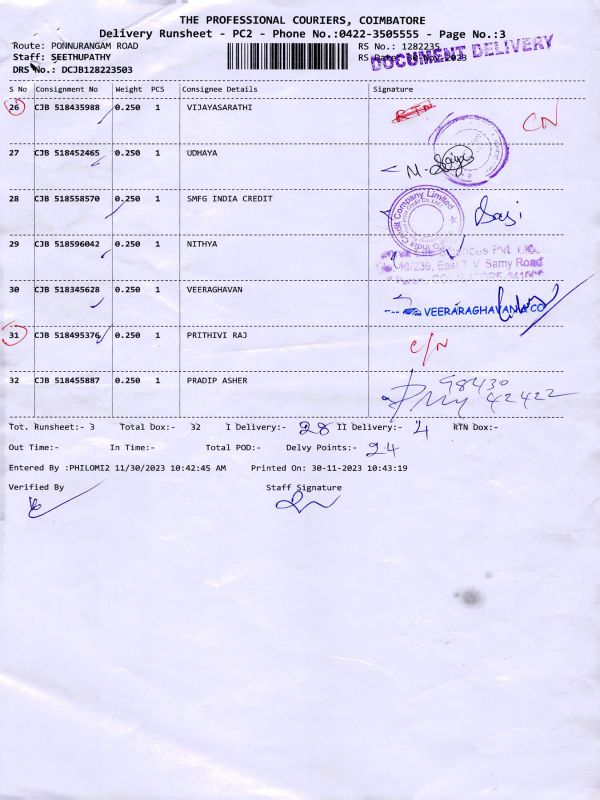 THE PROFESSIONAL COURIERS, COIMBATORE
Delivery Runsheet - PC2 - Phone No.:0422-3505555 - Page No.:3
Route: PONNURANGAM ROAD RS No.: 1282235
DOCUMENT DELIVERY
Staff: SEETHUPATHY RS Date: 30-Nov-2023
DRS No.: DCJB128223503
S No Consignment No Weight PCS Consignee Details Signature
26 CJB 518435988 0.250 1 VIJAYASARATHI RTN CN
27 CJB 518452465 0.250 1 UDHAYA
28 CJB 518558570 0.250 1 SMFG INDIA CREDIT
India Credit Company Limited
29 CJB 518596042 0.250 1 NITHYA
/239, East T V Samy Road
30 CJB 518345628 0.250 1 VEERAGHAVAN
VEERARAGHAVAN & CO
31 CJB 518495376 0.250 1 PRITHIVI RAJ C/N
32 CJB 518455887 0.250 1 PRADIP ASHER 98430
42422
Tot. Runsheet:- 3 Total box:- 32 I Delivery:- 28 II Delivery:- 4 RTN Dox:-
Out Time:- In Time:- Total POD:- Delvy Points:- 24
Entered By :PHILOMI2 11/30/2023 10:42:45 AM Printed On: 30-11-2023 10:43:19
Verified By Staff Signature